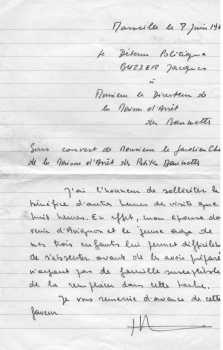 Marseille le 7 juin 19
Le Détenu Politique
BUZZER Jacques
à
Monsieur le Directeur de
la Maison d'Arrêt
des Baumettes
Sous couvert de Monsieur le Gardien Chef
de la Maison d'Arrêt des Petites Baumettes
J'ai l'honneur de solliciter le
bénéfice d'autres heures de visite que
huit heures. En effet, mon épouse doit
venir d'Avignon et le jeune age de
nos trois enfants lui permet difficilement
de s'absenter avant de les avoir préparé
n'ayant pas de famille susceptible
de la remplacer dans cette tache.
Je vous remercie d'avance de cette
faveur